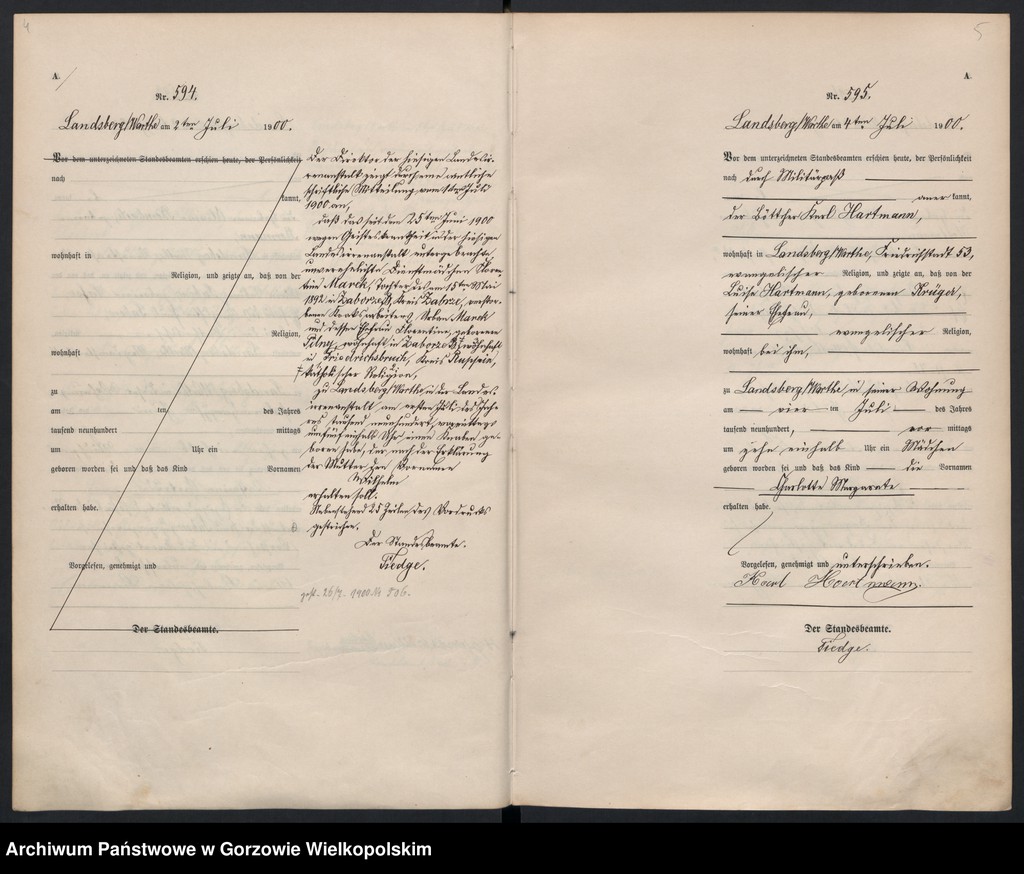 4
A.
Nr. 594.
Landsberg/Warthe am 2ten Juli 1900.
Vor dem unterzeichneten Standesbeamten erschien heute, der Persönlichkeit
nach
kannt,
wohnhaft in
Religion, und zeigte an, daß von der
Religion,
wohnhaft
zu
am ten des Jahres
tausend neunhundert mittags
um Uhr ein
geboren worden sei und daß das Kind Vornamen
erhalten habe.
Vorgelesen, genehmigt und
Der Standesbeamte.
Der Direktor der hiesigen Landesir-
renanstalt zeigt durch eine amtliche
schriftliche Mitteilung vom 1ten Juli
1900 an,
daß das seit dem 25ten Juni 1900
wegen Geisteskrankheit in der hiesigen
Landesirrenanstalt untergebrachte,
unverehelichte Dienstmädchen
Marek, Tochter des am 15ten Mai
1892 in Zaborze, Kreis Zabrze, verstor-
benen Urban Marek
und dessen Ehefrau Florentine, geborenen
Pilny, wohnhaft in Zaborze wohnhaft
in Friedrichsbruch, Kreis
katholischer Religion,
zu Landsberg/Warthe, in der Landes-
irrenanstalt, am ersten Juli des Jah-
res tausend neunhundert, vormittags
um fünf einhalb Uhr einen Knaben ge-
boren habe, der nach der Erklärung
der Mutter den Vornamen
Wilhelm
erhalten soll.
Nebenstehend 25 Zeilen des Vordrucks
gestrichen.
Der Standesbeamte.
Tiedge.
gest. 26/7. 1900 Nr 506.
5
A.
Nr. 595.
Landsberg/Warthe am 4ten Juli 1900.
Vor dem unterzeichneten Standesbeamten erschien heute, der Persönlichkeit
nach durch Militärpaß
anerkannt,
der Böttcher Karl Hartmann,
wohnhaft in Landsberg/Warthe, Friedrichstadt 53,
evangelischer Religion, und zeigte an, daß von der
Luise Hartmann, geborenen Krüger,
seiner Ehefrau,
evangelischer Religion,
wohnhaft bei ihm,
zu Landsberg/Warthe, in seiner Wohnung
am vierten Juli des Jahres
tausend neunhundert, vormittags
um zehn einhalb Uhr ein Mädchen
geboren worden sei und daß das Kind die Vornamen
Charlotte Margarete
erhalten habe.
Vorgelesen, genehmigt und unterschrieben.
Karl Hartmann.
Der Standesbeamte.
Tiedge.
Archiwum Państwowe w Gorzowie Wielkopolskim